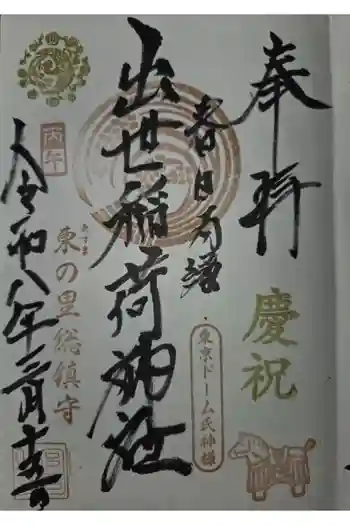 奉拝
慶祝
春日
東京ドーム氏神様
出世稲荷神社
丙午
東の里総鎮守
令和八年二月十